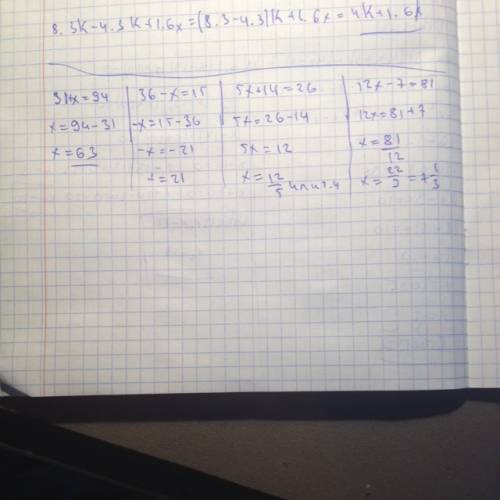 8.3k-4.3k+1.6x=(8.3-4.3)k+1.6x=4k+1.6x
31+x=94
x=94-31
x=63
36-x=15
-x=15-36
-x=-21
x=21
5x+14=26
5x=26-14
5x=12
x=12/5 или 2.4
12x-7=81
12x=81+7
x=81/12
x=22/3=7 1/3